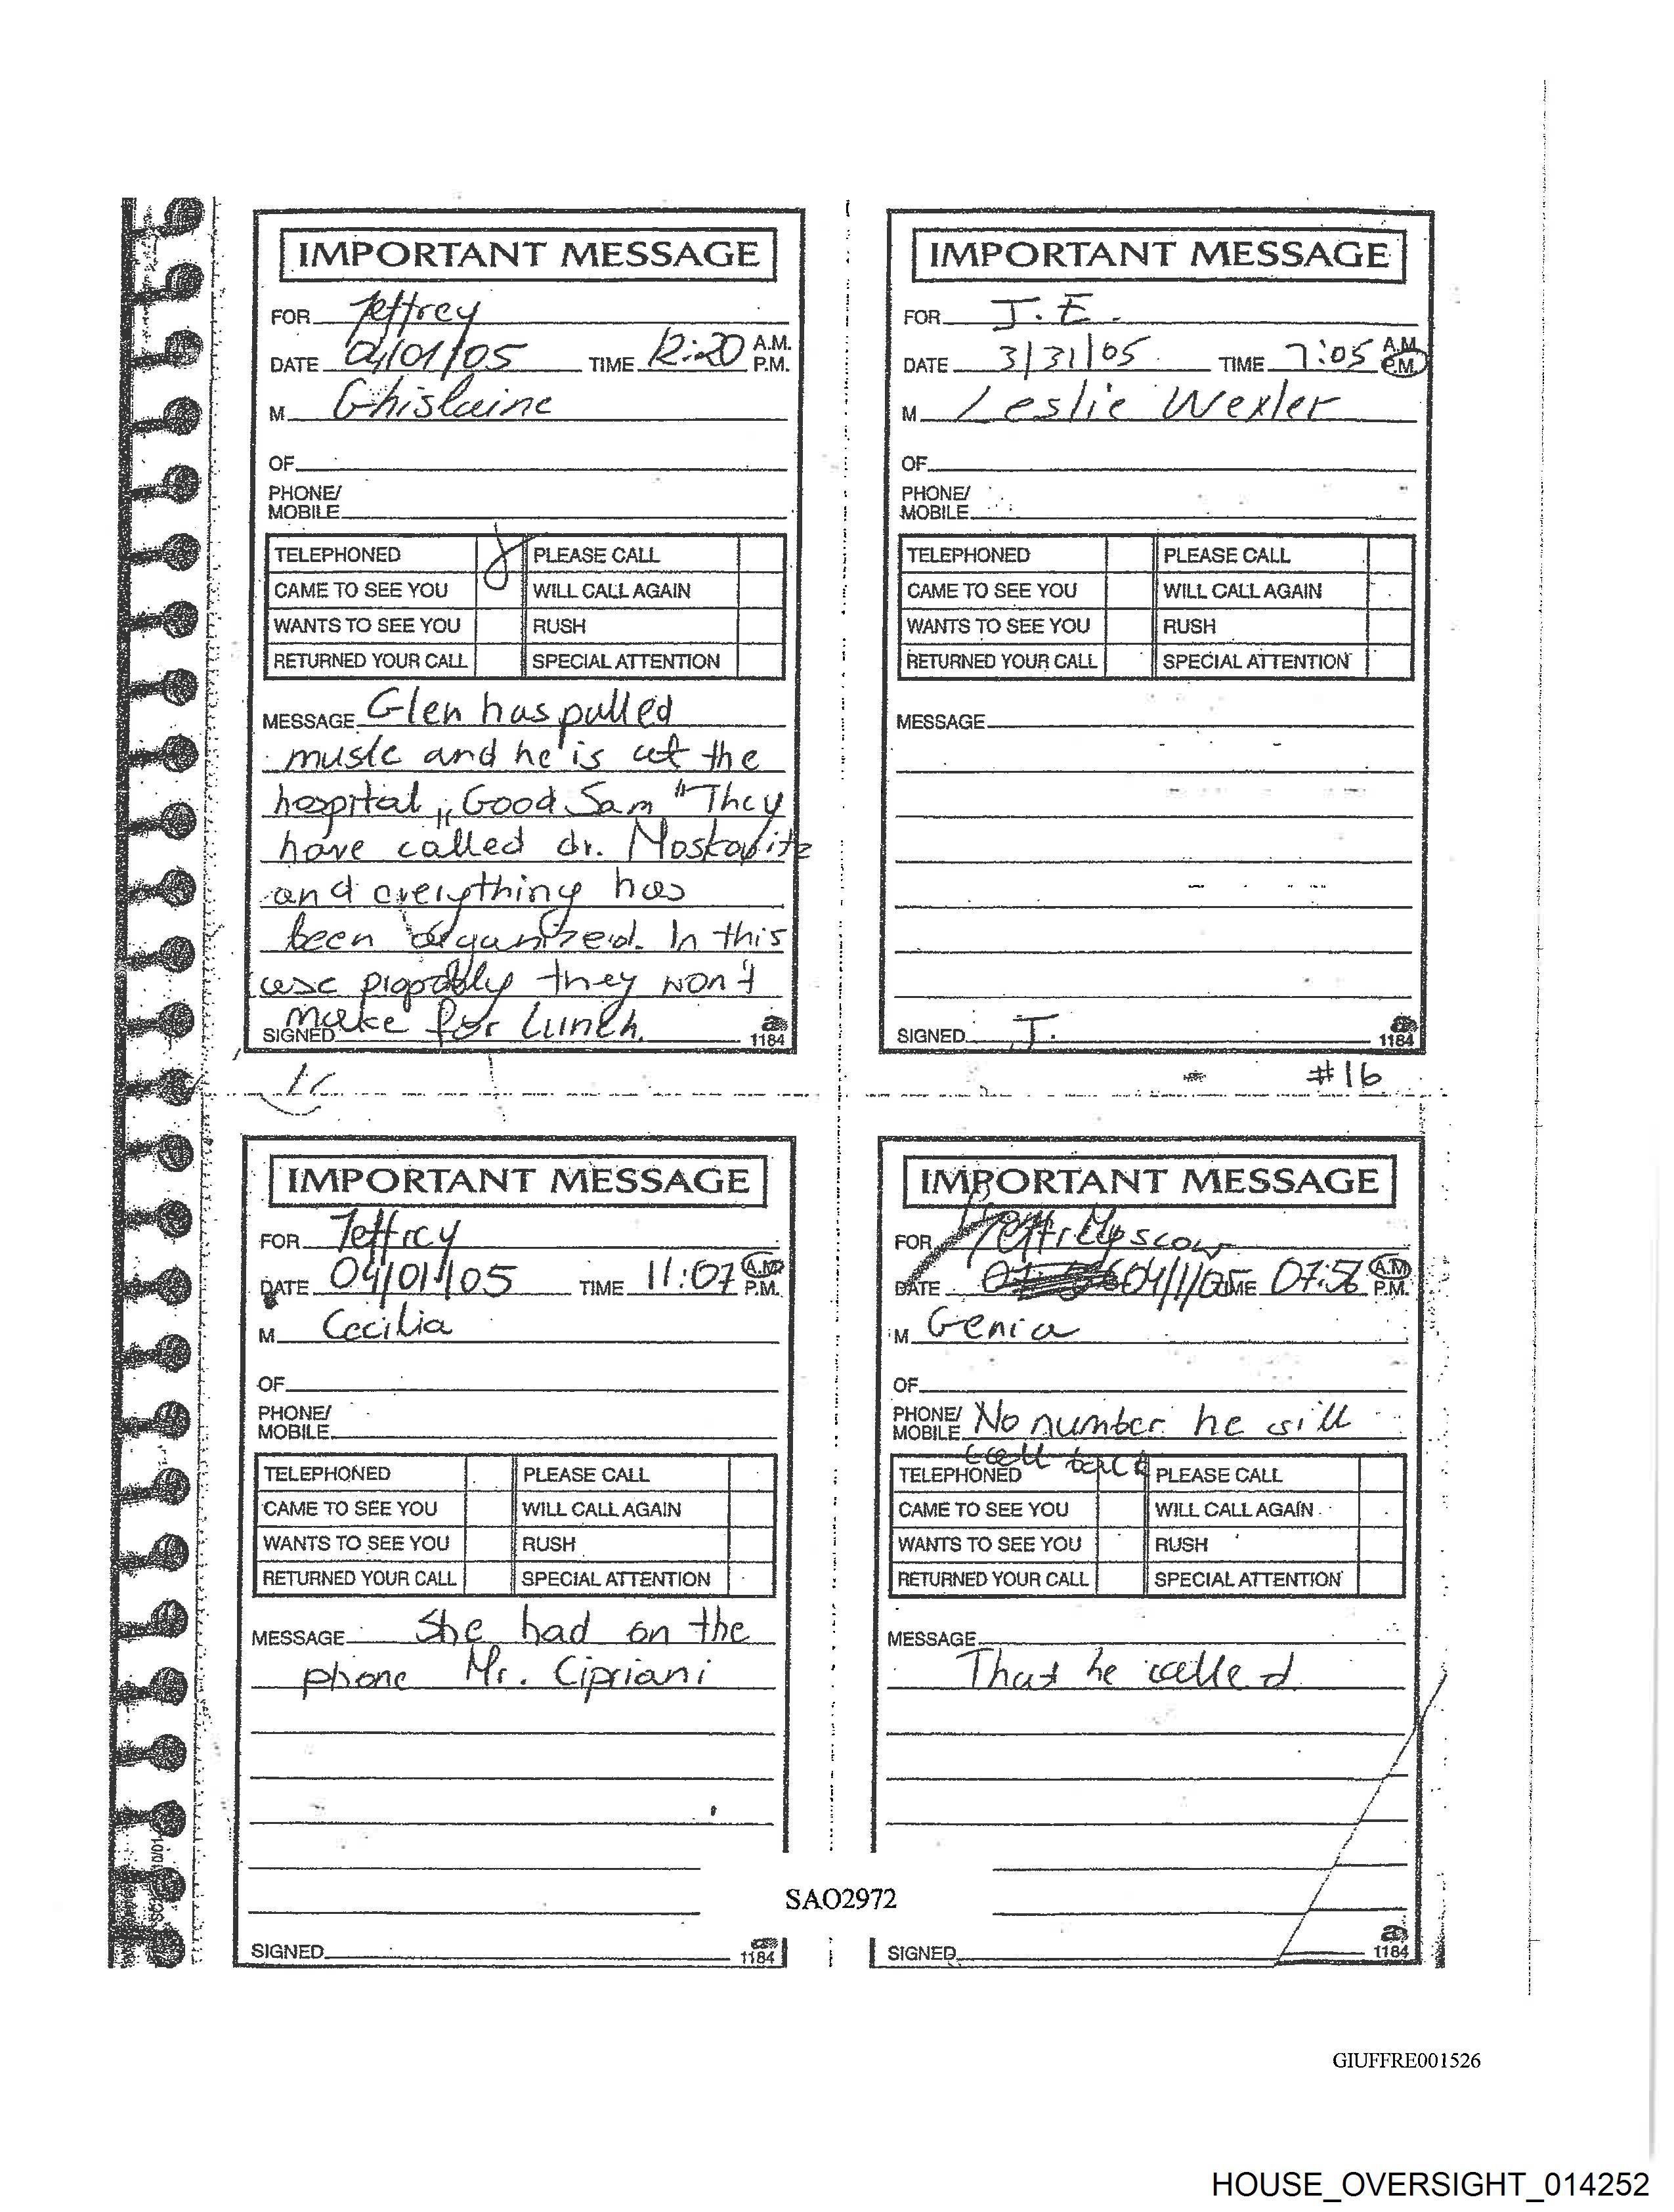 IMPORTANT MESSAGE
FOR Jeffrey
DATE 04/01/05 TIME 12:20 A.M. P.M.
M Ghislaine
OF
PHONE/
MOBILE
TELEPHONED PLEASE CALL
CAME TO SEE YOU WILL CALL AGAIN
WANTS TO SEE YOU RUSH
RETURNED YOUR CALL SPECIAL ATTENTION
MESSAGE Glen has pulled
muslc and he is at the
hospital „Good Sam" They
have called dr. Moskovitz
and everything has
been organized. In this
case proprobly they won't
make for lunch.
SIGNED 1184
IMPORTANT MESSAGE
FOR J.E.
DATE 3/31/05 TIME 7:05 A.M. P.M.
M Leslie Wexler
OF
PHONE/
MOBILE
TELEPHONED PLEASE CALL
CAME TO SEE YOU WILL CALL AGAIN
WANTS TO SEE YOU RUSH
RETURNED YOUR CALL SPECIAL ATTENTION
MESSAGE
SIGNED J. 1184
#16
IMPORTANT MESSAGE
FOR Jeffrey
DATE 04/01/05 TIME 11:07 A.M. P.M.
M Cecilia
OF
PHONE/
MOBILE
TELEPHONED PLEASE CALL
CAME TO SEE YOU WILL CALL AGAIN
WANTS TO SEE YOU RUSH
RETURNED YOUR CALL SPECIAL ATTENTION
MESSAGE She had on the
phone Mr. Cipriani
SIGNED 1184
IMPORTANT MESSAGE
FOR
DATE 04/1/05 TIME 07:56 A.M. P.M.
M Genia
OF
PHONE/ No number he will
MOBILE call back
TELEPHONED PLEASE CALL
CAME TO SEE YOU WILL CALL AGAIN
WANTS TO SEE YOU RUSH
RETURNED YOUR CALL SPECIAL ATTENTION
MESSAGE
That he called
SIGNED 1184
SAO2972
GIUFFRE001526
HOUSE_OVERSIGHT_014252